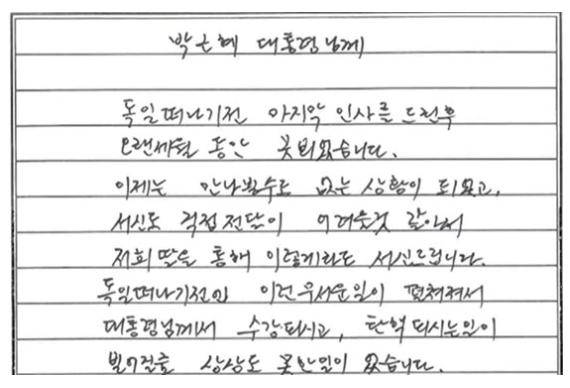 박근혜 대통령님께
독일떠나기전 마지막 인사를 드린후
오랜세월 동안 못뵈었습니다.
이제는 만나뵐수도 없는 상황이 되었고,
서신도 직접전달이 어려운것 같아서
저희 딸을 통해 이렇게라도 서신드립니다.
독일떠나기전엔 이런 우서운일이 펼쳐져서
대통령님께서 수감되시고, 탄핵되시는일이
벌어질줄 상상도 못한일이 었습니다.